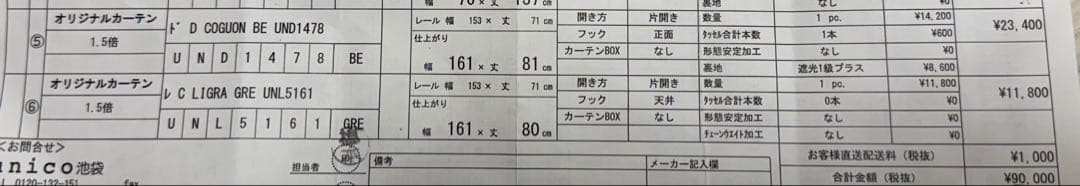 裏地 なし
オリジナルカーテン ﾄﾞ D COGUON BE UND1478 レール 幅 153 × 丈 71 cm 開き方 片開き 数量 1 pc. ¥14,200 ¥23,400
⑤ 仕上がり フック 正面 ﾀｯｾﾙ合計本数 1本 ¥600
1.5倍 U N D 1 4 7 8 BE 幅 161 × 丈 81 cm カーテンBOX なし 形態安定加工 なし ¥0
裏地 遮光1級プラス ¥8,600
オリジナルカーテン ﾚ C LIGRA GRE UNL5161 レール 幅 153 × 丈 71 cm 開き方 片開き 数量 1 pc. ¥11,800 ¥11,800
⑥ 仕上がり フック 天井 ﾀｯｾﾙ合計本数 0本 ¥0
1.5倍 U N L 5 1 6 1 GRE 幅 161 × 丈 80 cm カーテンBOX なし 形態安定加工 なし ¥0
ﾁｪｰﾝｳｴｲﾄ加工 なし ¥0
＜お問合せ＞
unico池袋 担当者 備考 メーカー記入欄 お客様直送配送料（税抜） ¥1,000
0120-132-151 fax 合計金額（税抜） ¥90,000